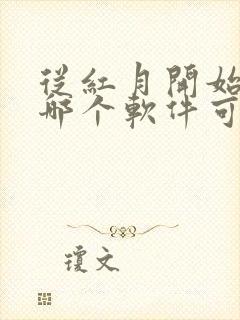 從紅月開始
哪个軟件可
瓊文